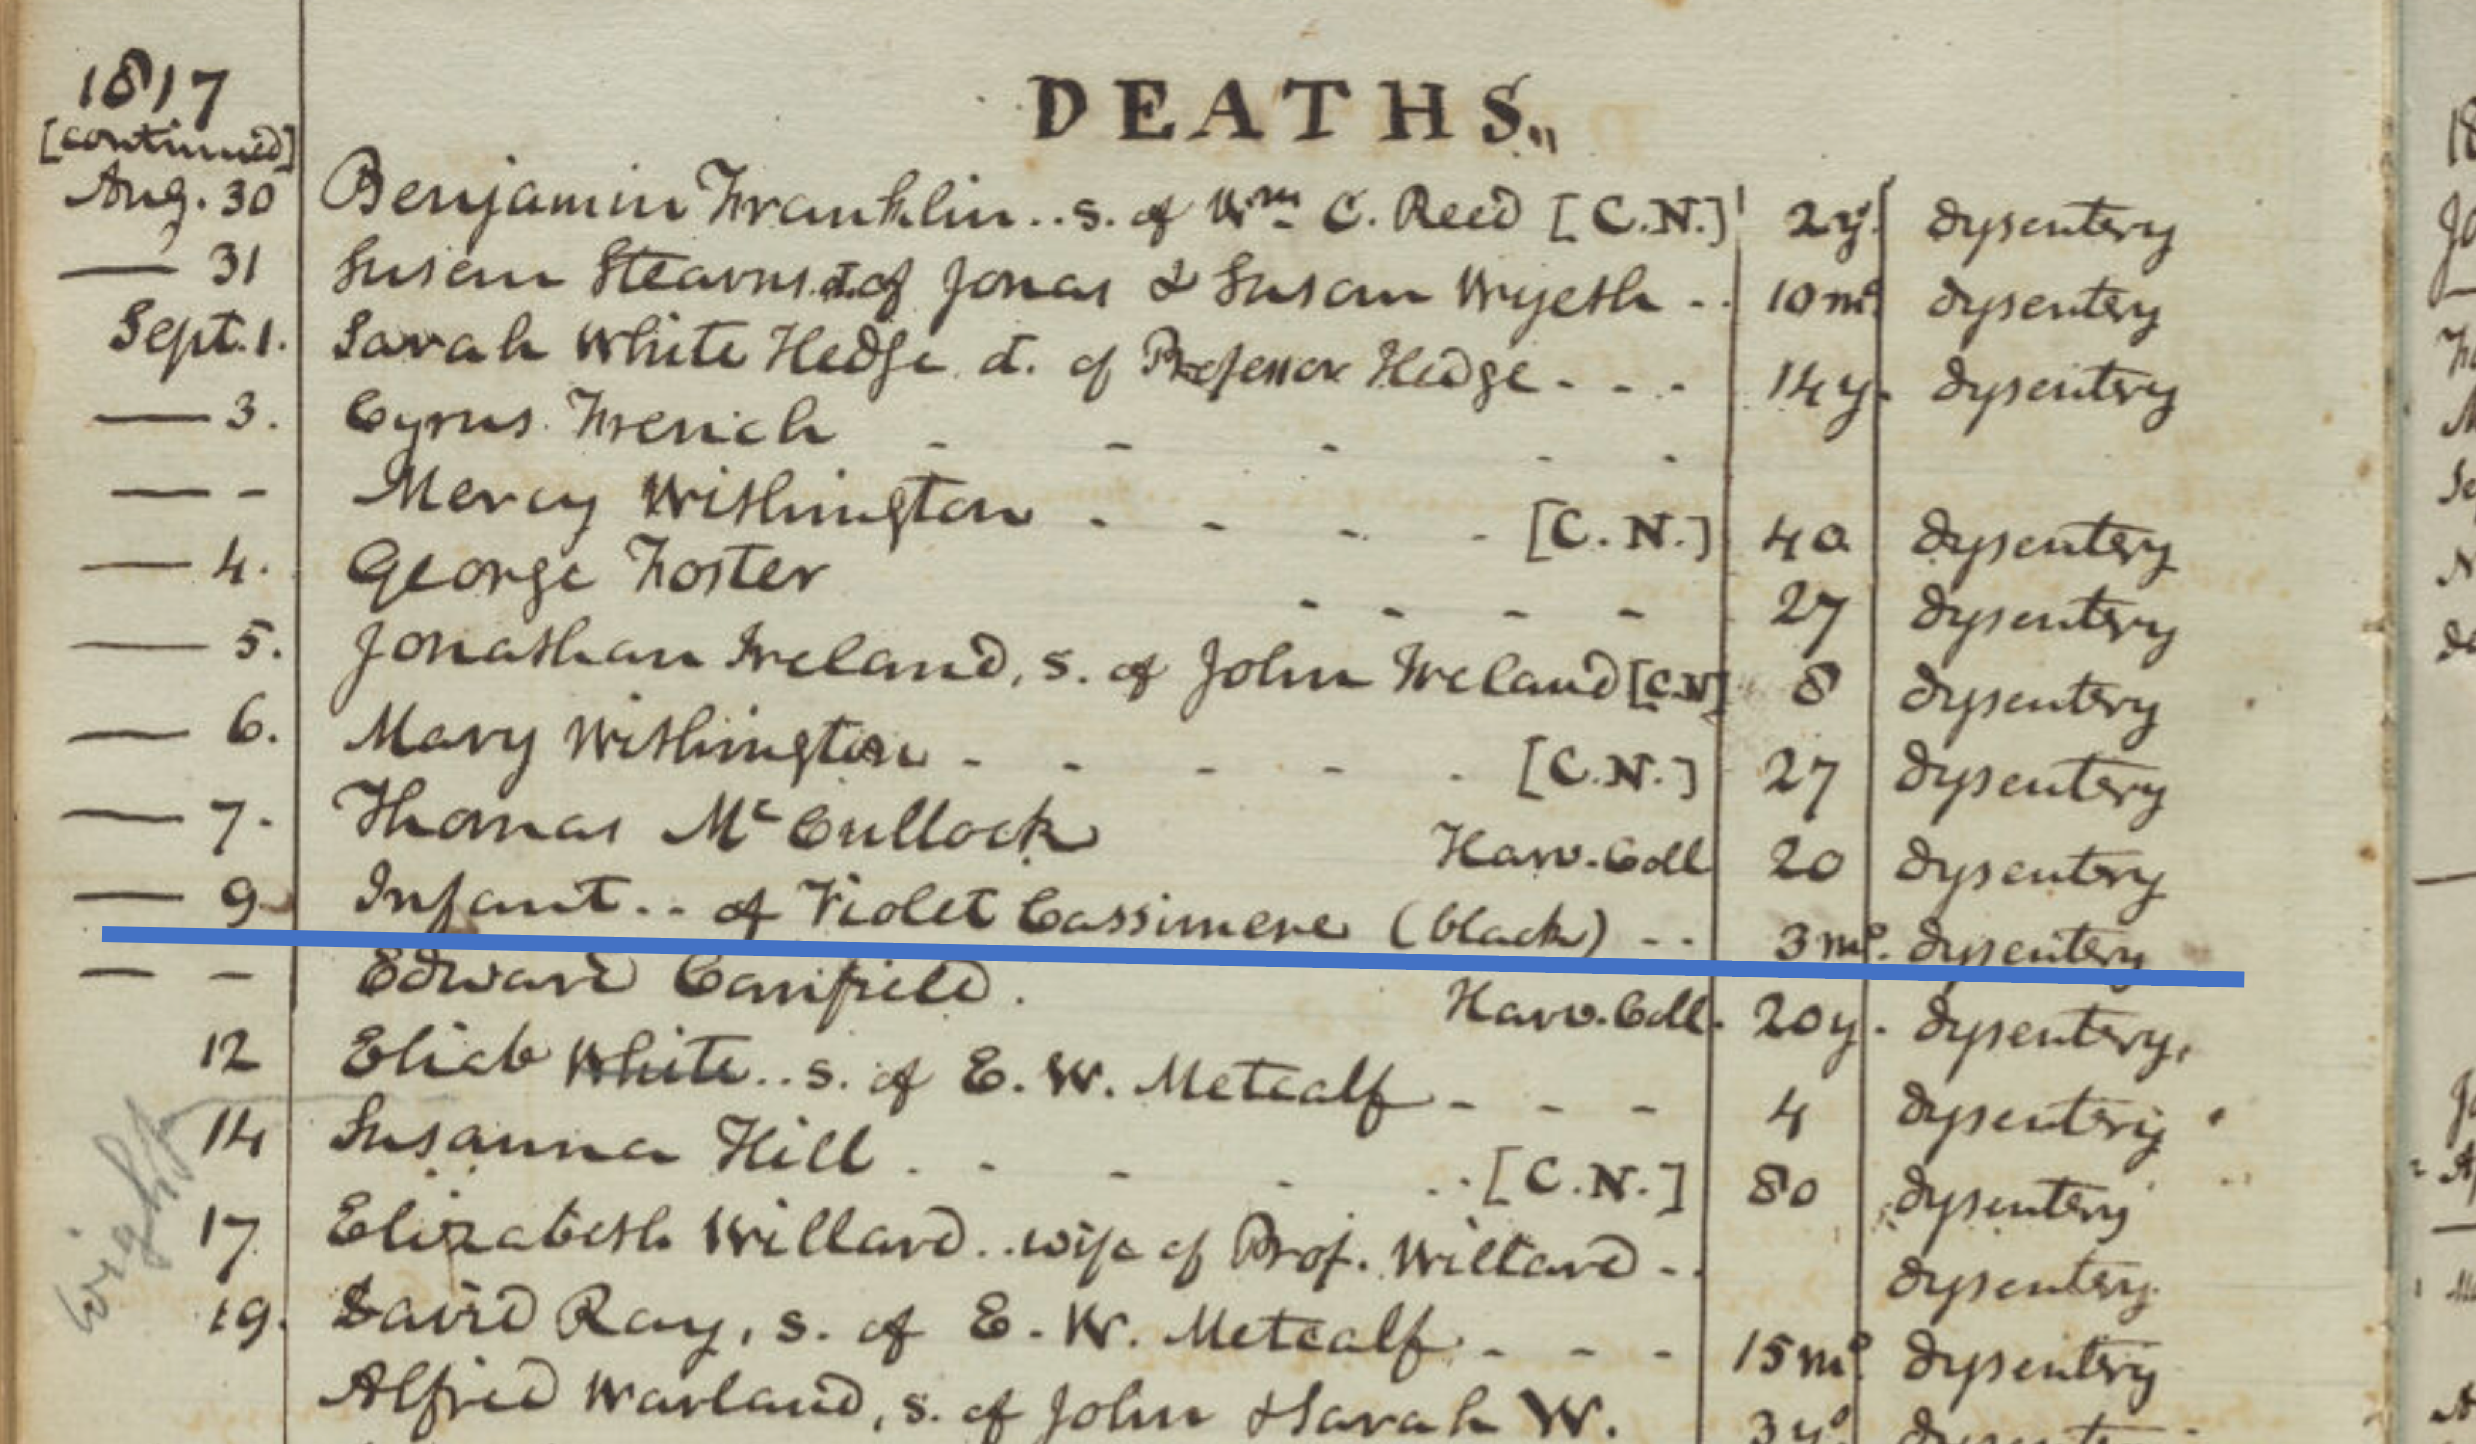 1817
DEATHS.
[continued]
Aug. 30 Benjamin Franklin.. s. of Wm C. Reed [C.N.] 2y. dysentery
— 31 Susan Stearns d. of Jonas & Susan Wyeth .. 10 mo. dysentery
Sept. 1. Sarah White Hedge d. of Professor Hedge - - - 14 y. dysentery
— 3. Cyrus French - - - - -
— - Mercy Withington - - - - [C.N.] 40 dysentery
— 4. George Foster - - - - 27 dysentery
— 5. Jonathan Ireland, s. of John Ireland [C.N] 8 dysentery
— 6. Mary Withington - - - - - [C.N.] 27 dysentery
— 7. Thomas Mc Cullock Harv. Coll 20 dysentery
— 9. Infant .. of Violet Cassimere (black) .. 3 mo. dysentery
— - Edward Canfield. Harv. Coll. 20 y. dysentery.
12 Eliab White .. s. of E. W. Metcalf - - - 4 dysentery
14 Susanna Hill . - - - .. [C.N.] 80 dysentery
17 Elizabeth Willard .. wife of Prof. Willard .. dysentery
19. David Ray, s. of E. W. Metcalf - - - 15 mo. dysentery
Alfred Warland, s. of John & Sarah W. 3 y.